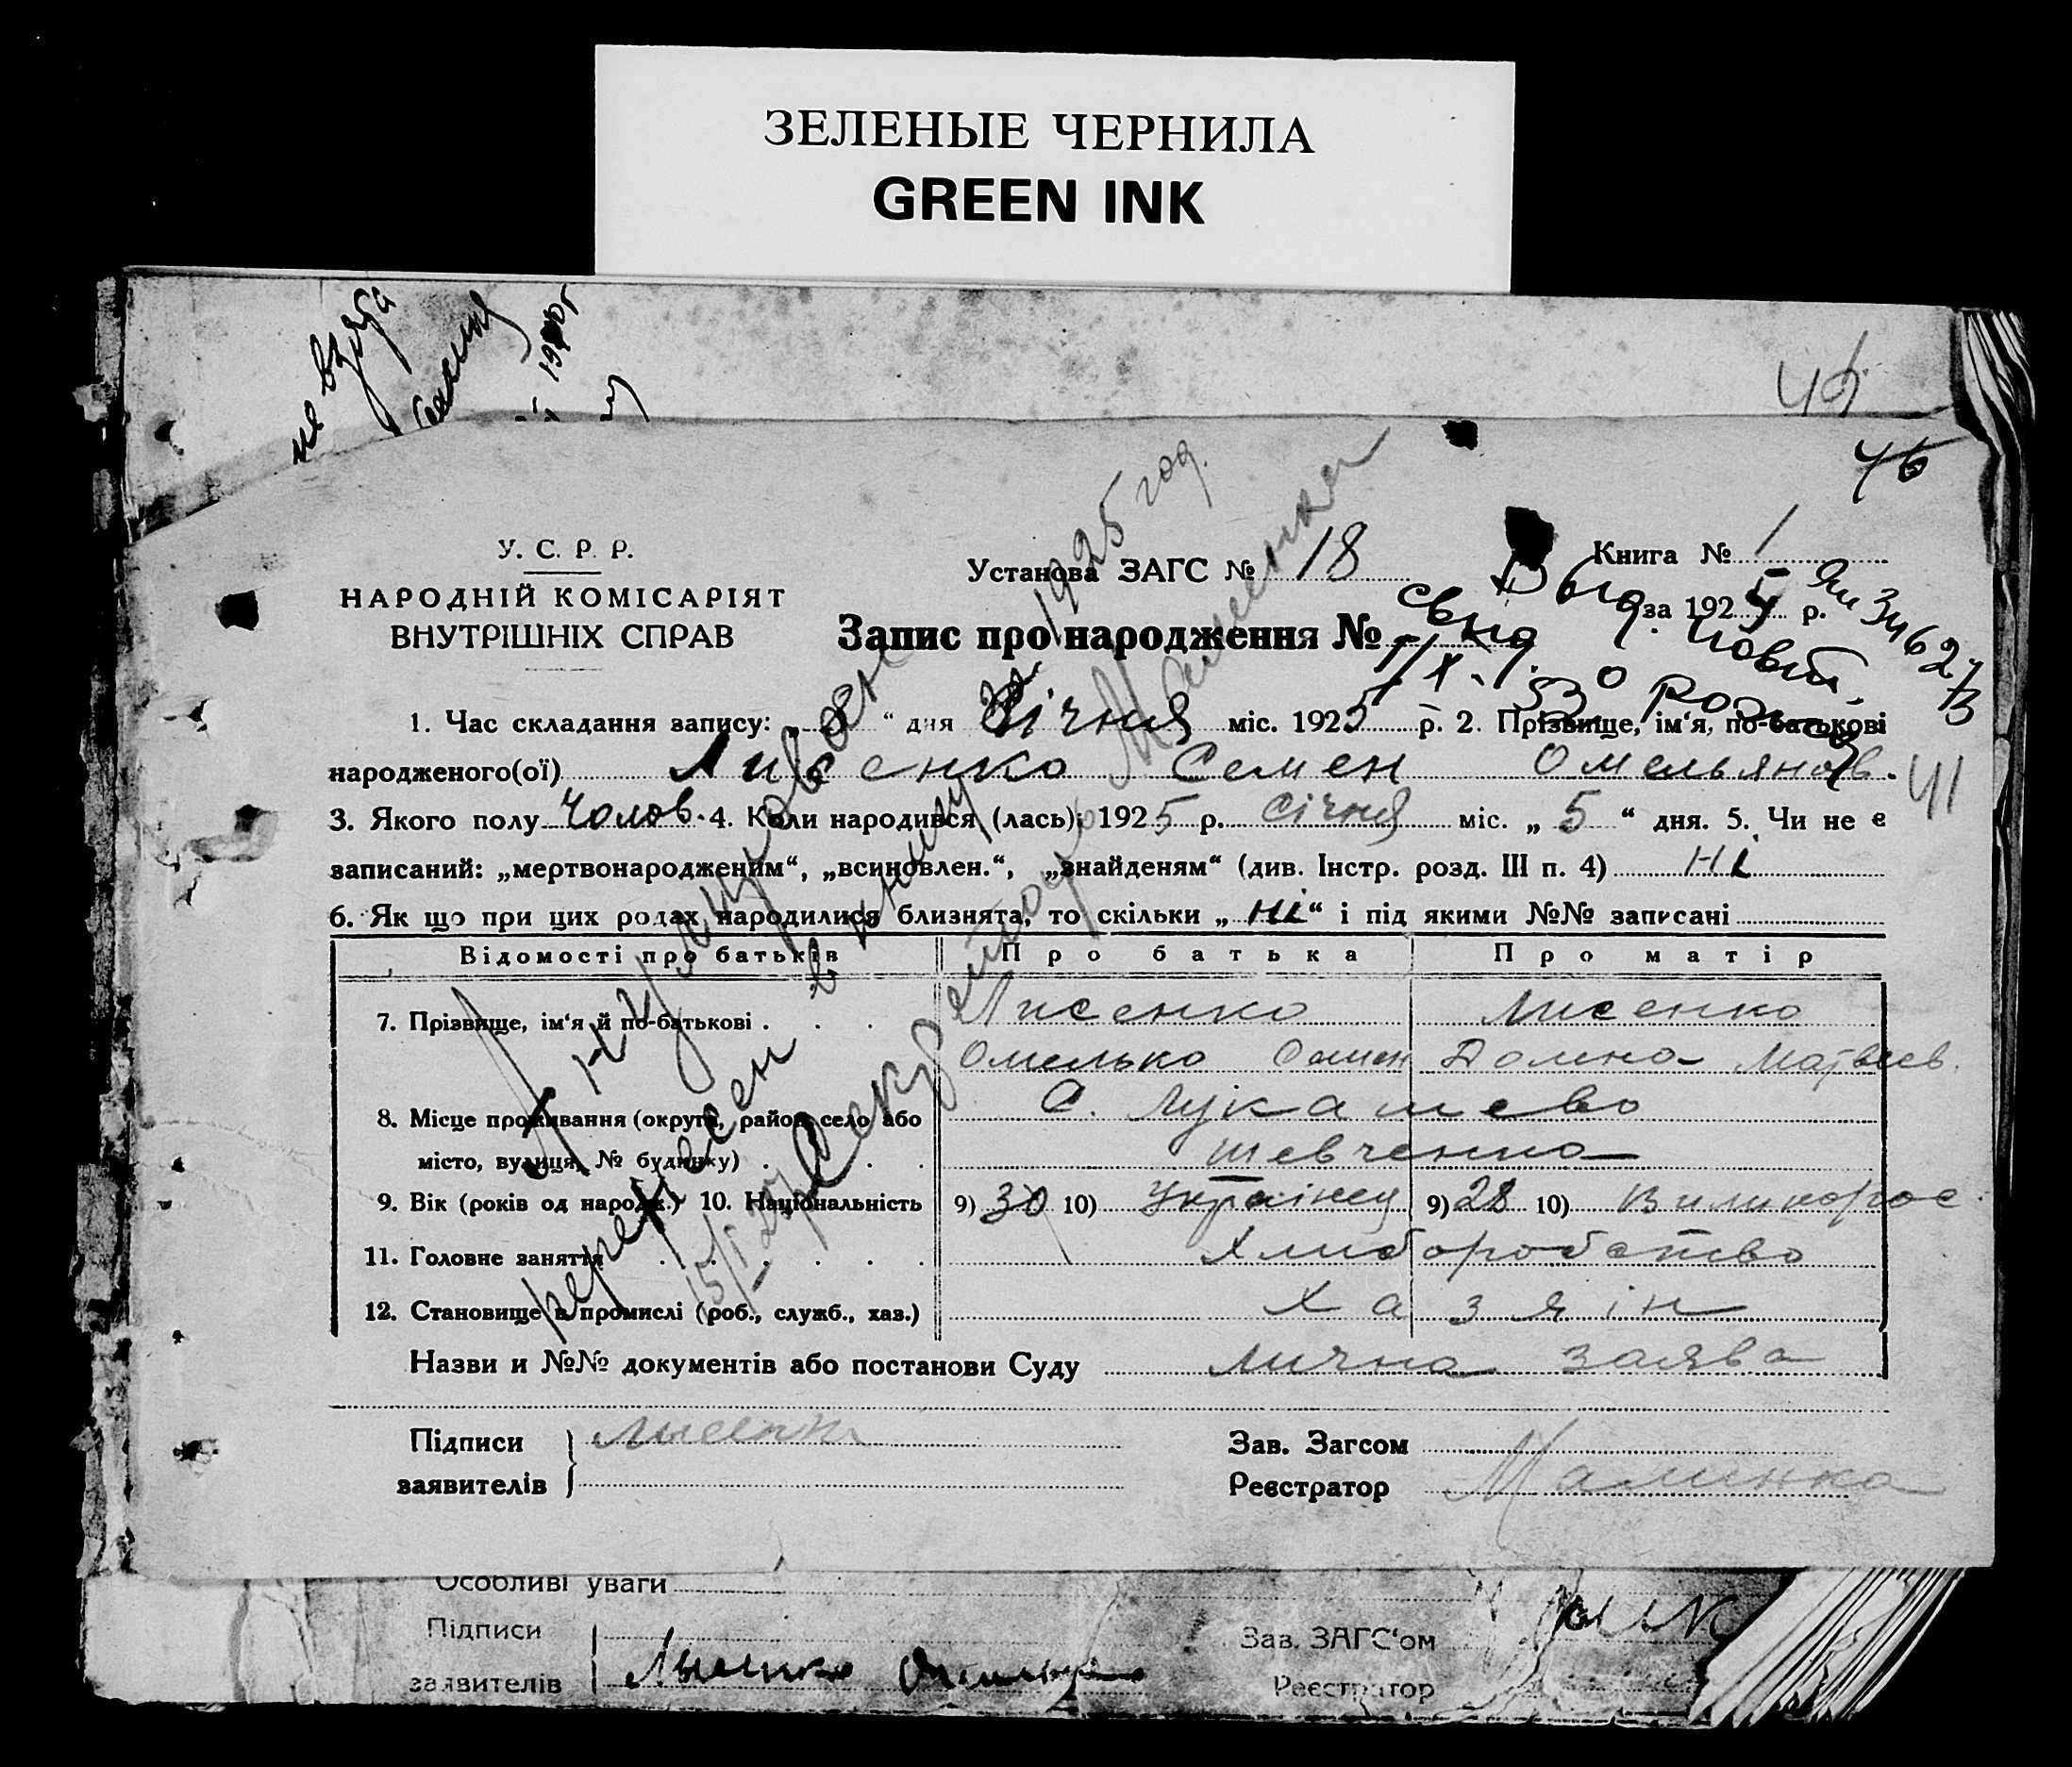 ЗЕЛЕНЫЕ ЧЕРНИЛА
GREEN INK
не взяв
46
46
У. С. Р. Р.
НАРОДНІЙ КОМІСАРІЯТ
ВНУТРІШНІХ СПРАВ
Установа ЗАГС № 18
Книга № 1
за 1925 р.
Запис про народження №
Выд. повт.
свид. о рожд
ЯИ 34627
1. Час складання запису: „ 8 “ дня Січня міс. 1925 р. 2. Прізвище, ім‘я, по-батькові
народженого(ої) Лисенко Семен Омельянов.
41
3. Якого полу Чолов. 4. Коли народився (лась): 1925 р. Січня міс. „ 5 “ дня. 5. Чи не є
записаний: „мертвонародженим“, „всиновлен.“, „знайденям“ (див. Інстр. розд. III п. 4) Ні
6. Як що при цих родах народилися близнята, то скільки „ Ні “ і під якими №№ записані
Відомості про батьків Про батька Про матір
7. Прізвище, ім‘я й по-батькові . . . Лисенко Лисенко
Омелько Семен Матвеев.
8. Місце проживання (округа, район, село або С. Лукашево
місто, вулиця, № будинку) . . . Шевченка
9. Вік (років од народж.) 10. Національність 9) 30 10) Українец 9) 28 10) Виликорос
11. Головне заняття . . . . . . Хлиборобство
12. Становище в промислі (роб., служб., хаз.) Хазяін
Назви и №№ документів або постанови Суду лична заява
Анулирован
перенесен в книгу 1925 год.
15/I 25 р. Секретор Малиенка
Підписи Лысенко Зав. Загсом
заявителів Реєстратор Малиенка
Особливі уваги
Підписи Зав. ЗАГС‘ом
заявителів Лысенко Реєстратор